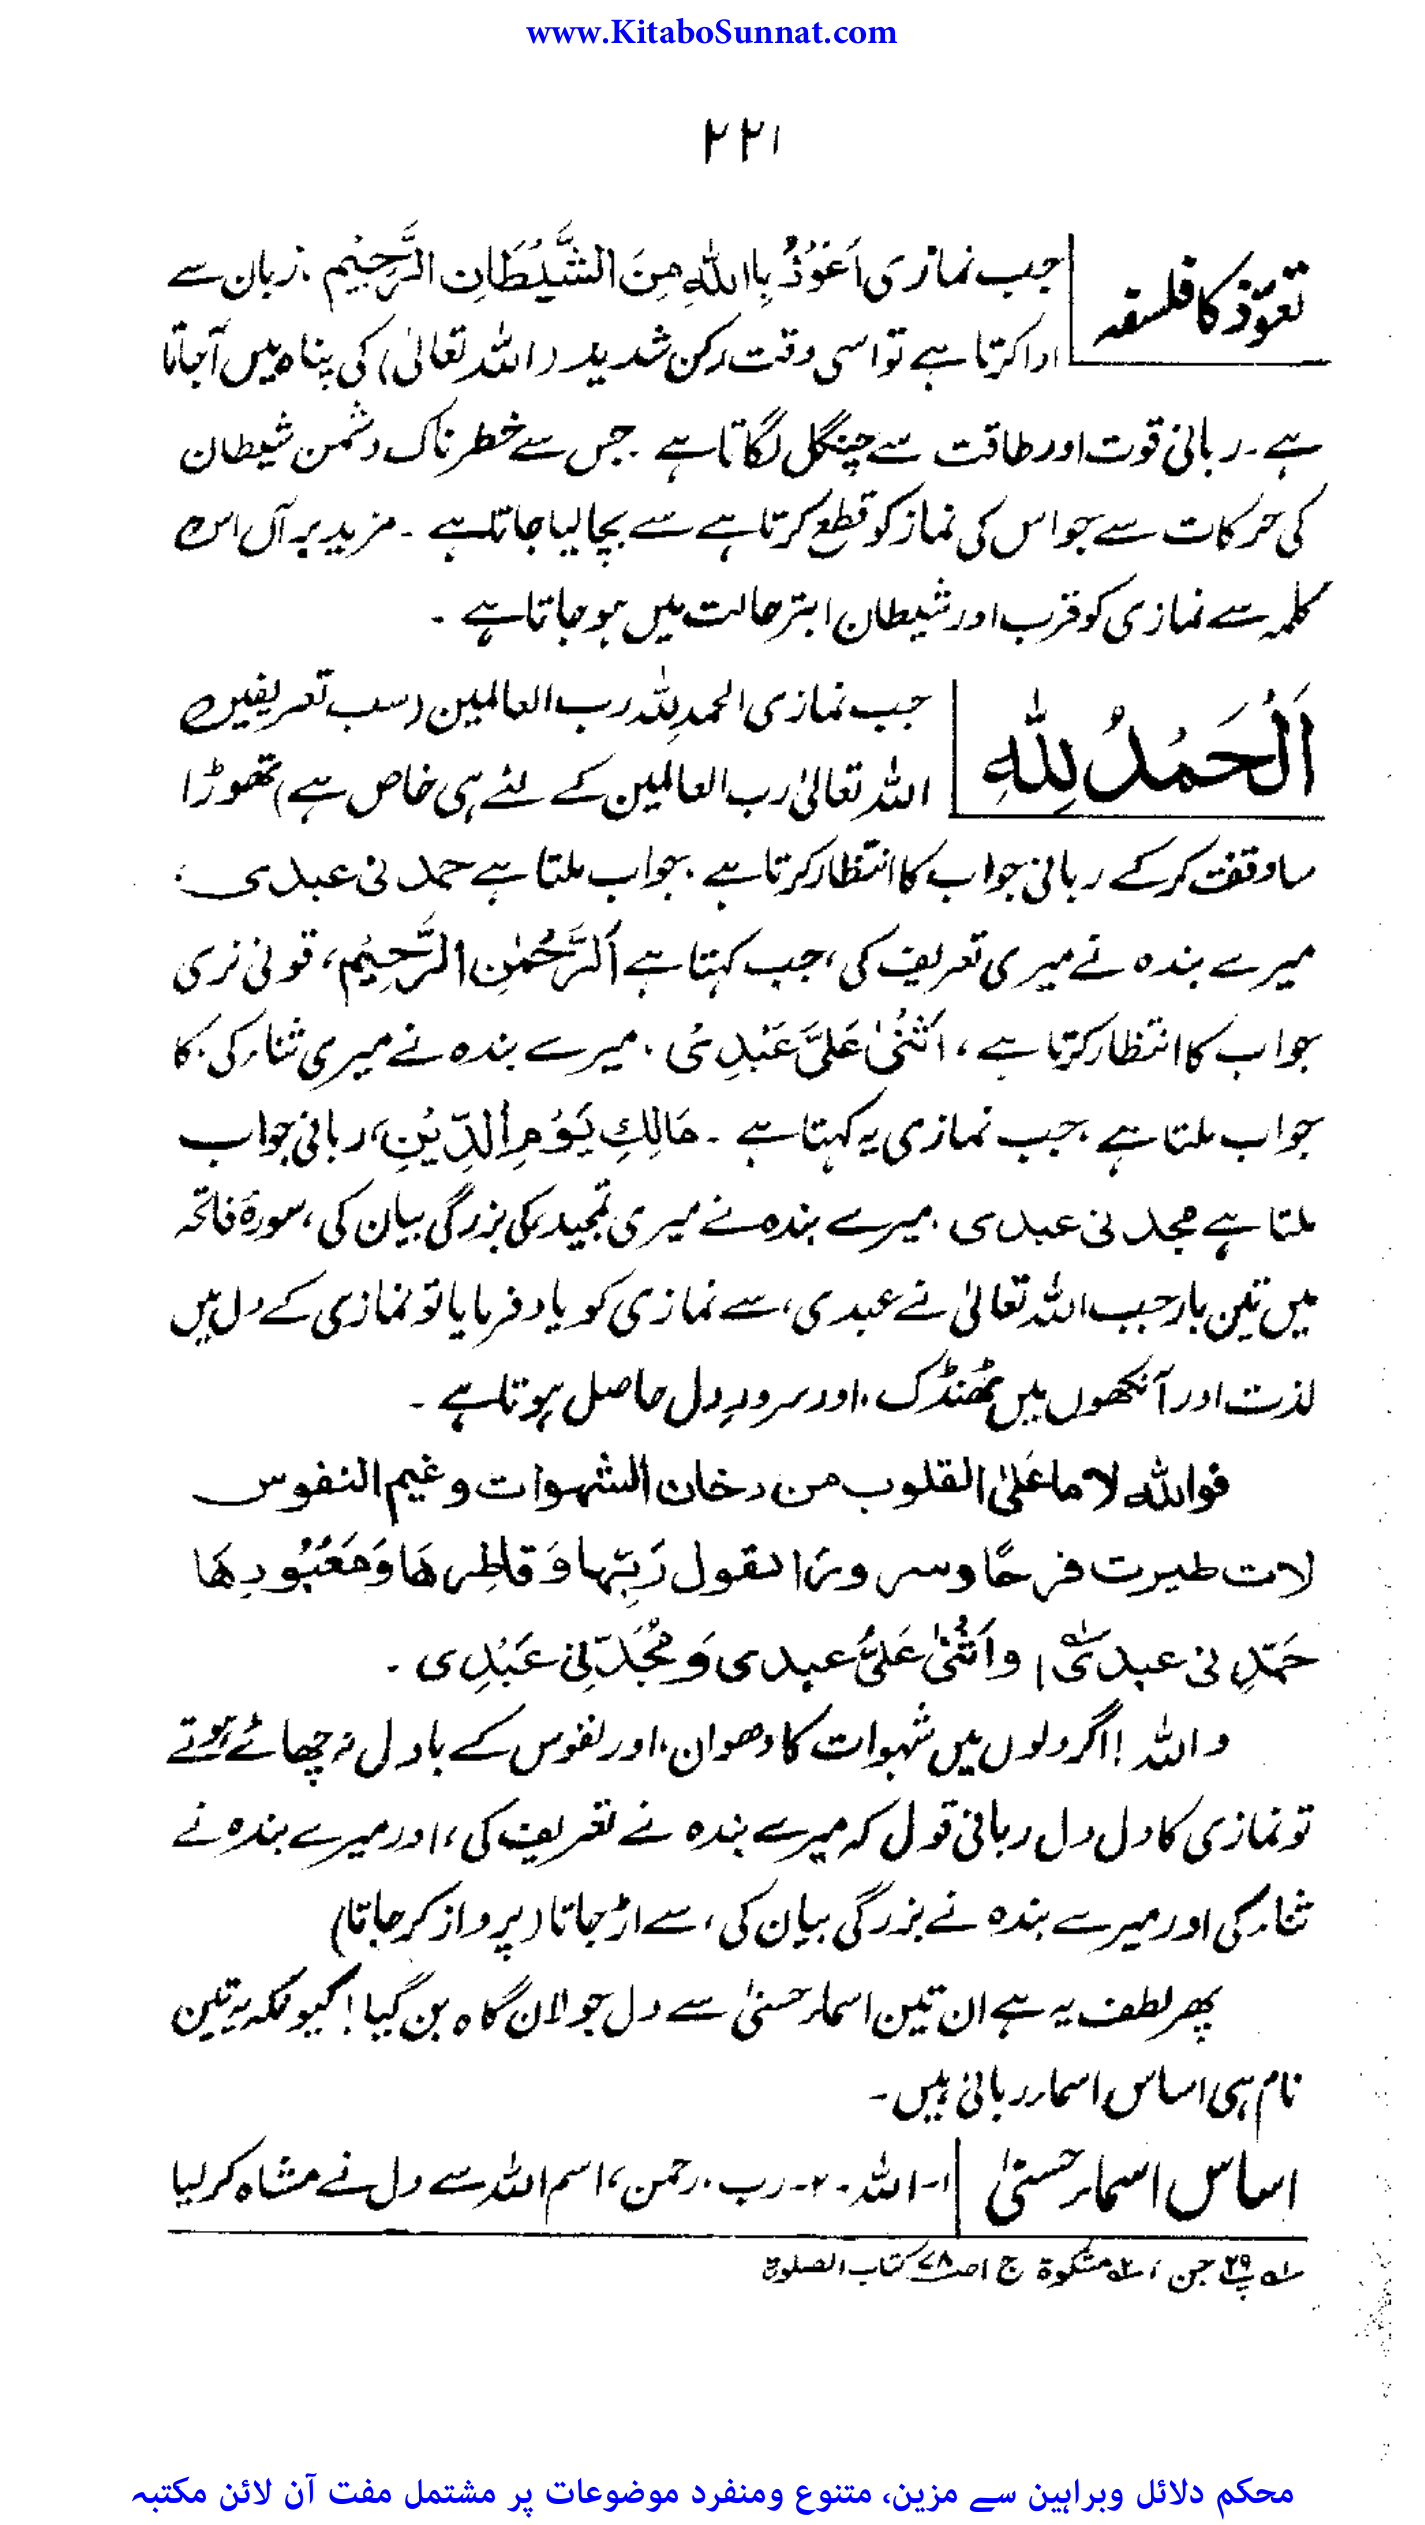 www.KitaboSunnat.com
۲۲۱
تعوّذ کا فلسفہ
جب نمازی اَعُوْذُ بِااللّٰهِ مِنَ الشَّيْطَانِ الرَّجِيْمِ . زبان سے
ادا کرتا ہے تو اسی وقت رکن شدید (اللہ تعالیٰ) کی پناہ میں آجاتا
ہے ۔ ربانی قوت اور طاقت سے چنگل لگاتا ہے . جس سے خطرناک دشمن شیطان
کی حرکات سے جو اس کی نماز کو قطع کرتا ہے سے بچا لیا جاتا ہے ۔ مزید بر آں اس
کلمہ سے نمازی کو قرب اور شیطان ابتر حالت میں ہو جاتا ہے ۔
اَلْحَمْدُ لِلّٰهِ
جب نمازی الحمدِ للّٰہ رب العالمین (سب تعریفیں
اللہ تعالیٰ رب العالمین کے لئے ہی خاص ہے) تھوڑا
سا وقفت کر کے ربانی جواب کا انتظار کرتا ہے . جواب ملتا ہے حمد نی عبدی :
میرے بندہ نے میری تعریف کی ، جب کہتا ہے اَلرَّحْمٰنِ الرَّحِيْمِ ، تو نی زی
جواب کا انتظار کرتا ہے ، اَثْنٰى عَلَىَّ عَبْدِىْ . میرے بندہ نے میری ثناء کی . کا
جواب ملتا ہے ، جب نمازی یہ کہتا ہے ۔ مَالِكِ يَوْمِ الدِّيْنِ ، ربانی جواب
ملتا ہے مجد نی عبدی . میرے بندہ نے میری تمجید کی بزرگی بیان کی ، سورۃ فاتحہ
میں تین بار جب اللہ تعالیٰ نے عبدی ، سے نمازی کو یاد فرمایا تو نمازی کے دل میں
لذت اور آنکھوں میں ٹھنڈک ، اور سرورِ دل حاصل ہوتا ہے ۔
فواللّٰه لا ما عَلىٰ القلوب من دخان الشهوات و غيم النفوس
لات طيرت فرحًا و سرورًا لقول رَبِّها وَ فاطِرِهَا وَ مَعْبُودِهَا
حَمّدِ نی عبدیؔ ، و اَثْنٰى عَلَىَّ عبدی وَ مُجَدّنِی عَبْدِی ۔
واللہ ! اگر دلوں میں شہوات کا دھوان ، اور نفوس کے بادل نہ چھائے ہوتے
تو نمازی کا دل دل ربانی قول کہ میرے بندہ نے تعریف کی ، اور میرے بندہ نے
ثناء کی اور میرے بندہ نے بزرگی بیان کی ، سے اڑ جاتا (پرواز کر جاتا)
پھر لطف یہ ہے ان تین اسماء حسنیٰ سے دل جولان گاہ بن گیا ! کیونکہ یہ تین
نام ہی اساس اسماء ربانی ہیں ۔
اساس اسماء حسنیٰ
۱۔ اللہ ۔ ۲۔ رب . رحمن ، اسم اللہ سے دل نے مشاہ کر لیا
؎۱ پ ۲۹ جن ، ؎۲ مشکوٰۃ ج ۱ ص ۷۸ کتاب الصلوٰۃ
محکم دلائل وبراہین سے مزین، متنوع ومنفرد موضوعات پر مشتمل مفت آن لائن مکتبہ